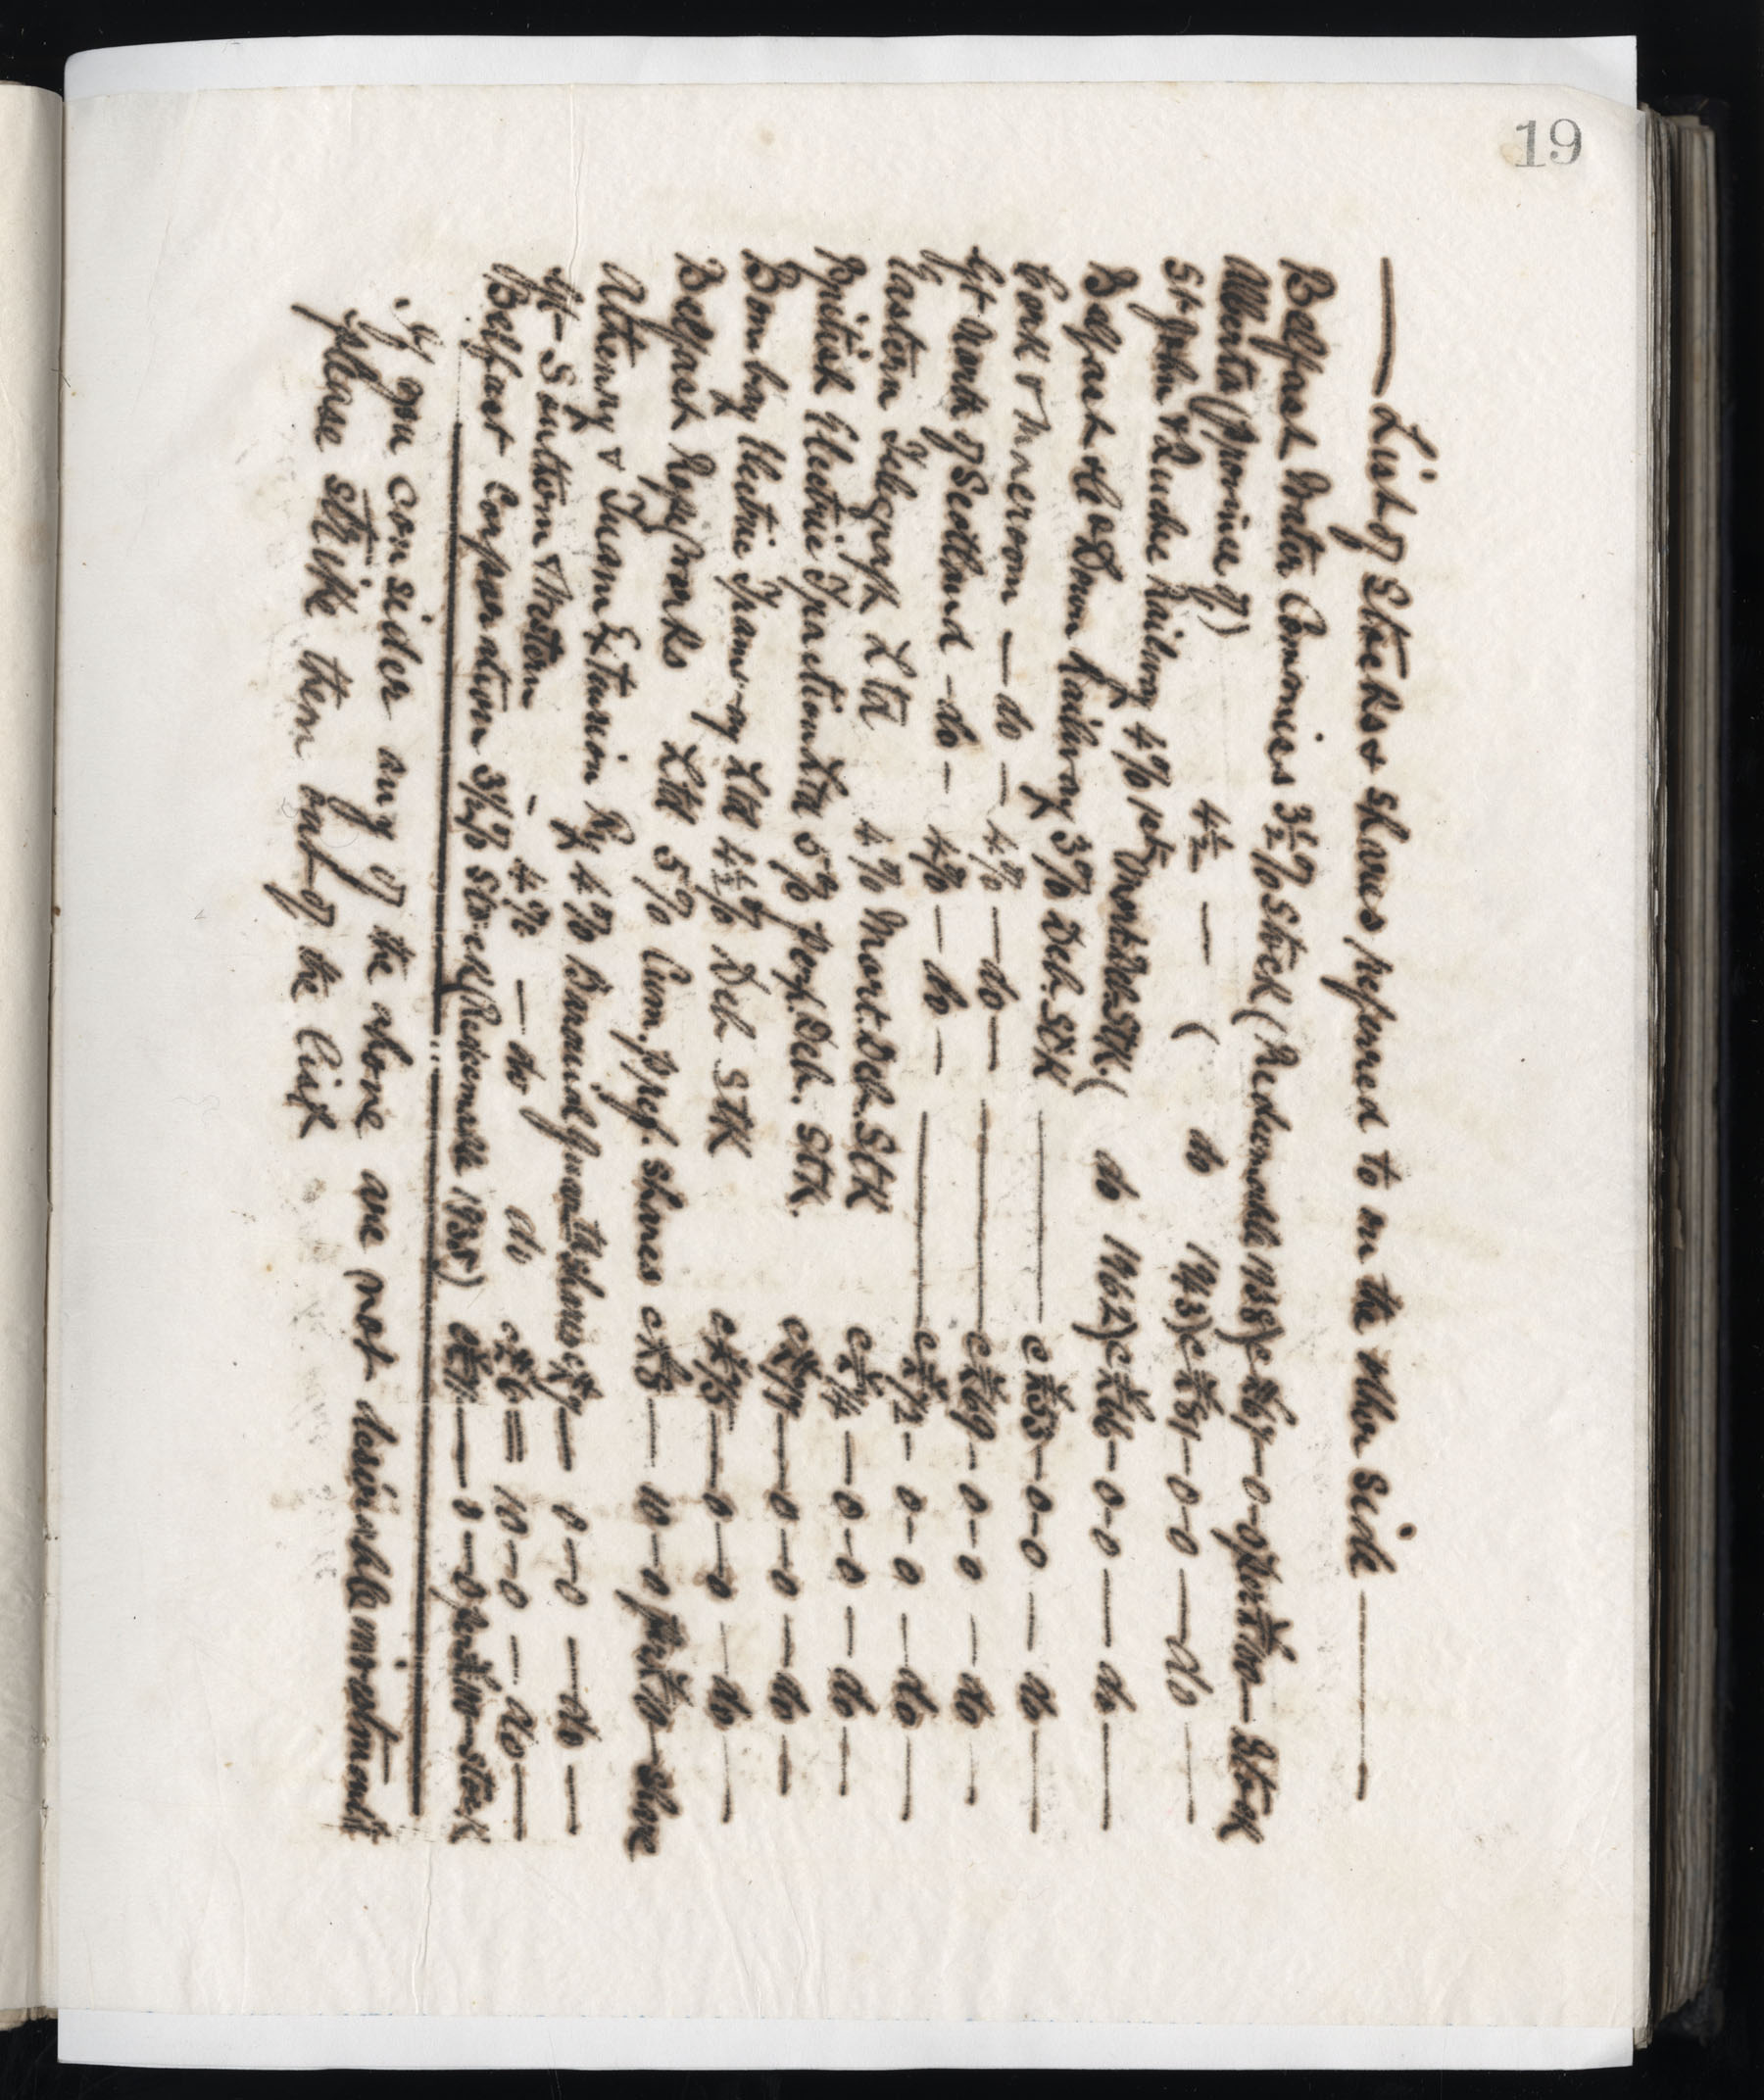 19
— List of Stocks & shares referred to on the other side —
Belfast Water Commrs 3½% Stock (Redeemable 1938) @ £67-0-0 per £100 Stock
Alberta (Province of) 4½ — ( do 1943) @ £81-0-0 — do —
St John & Quebec Railway 4% 1st Mort. Deb. Stk. ( do 1962) @ £66-0-0 — do —
Belfast & Co Down Railway 3% Deb. Stk — @ £53-0-0 — do —
Cork & Mcroom — do — 4% — do — @ £69-0-0 — do —
Gt North of Scotland — do — 4% — do — @ £72-0-0 — do —
Eastern Telegraph Ltd 4% Mort. Deb. Stk @ £74-0-0 — do —
British Electric Traction Ltd 5% perp. Deb. Stk. @ £77-0-0 — do —
Bombay Electric Tramway Ltd 4½% Deb Stk @ £75-0-0 — do —
Belfast Ropeworks Ltd 5% Cum. pref. Shares @ £5-10-0 per £10 share
Athenry & Tuam Extension Ry 4% Baronial Guarntd shares @ £7-0-0 — do —
Gt Southern & Western - 4% — do do @ £6=10-0 — do —
Belfast Corporation 3½% Stock (Redeemable 1935) @ £71-0-0 per £100 stock
If you consider any of the above are not desirable investments
please strike them out of the list